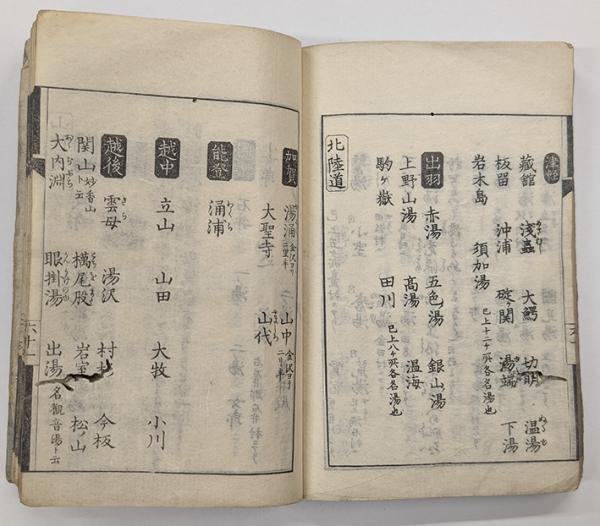 津軽
藏館 浅蟲 大鰐 切明 温湯
板留 沖浦 碇ヶ関 湯端 下湯
岩木島 須加湯 已上十二ヶ所各名湯也
出羽 赤湯 五色湯 銀山湯
上野山湯 高湯 温海
駒ヶ嶽 田川 已上八ヶ所各名湯也
北陸道
加賀 湯涌 金沢ヨリ三里半 山中 金沢ヨリ
大聖寺 山代
能登 涌浦
越中 立山 山田 大牧 小川
越後 雲母 湯沢 村杉 今板
関山 妙香山ト云 橋尾股 岩室 松ノ山
大内淵 眼掛湯 出湯 名觀音湯ト云
六十一